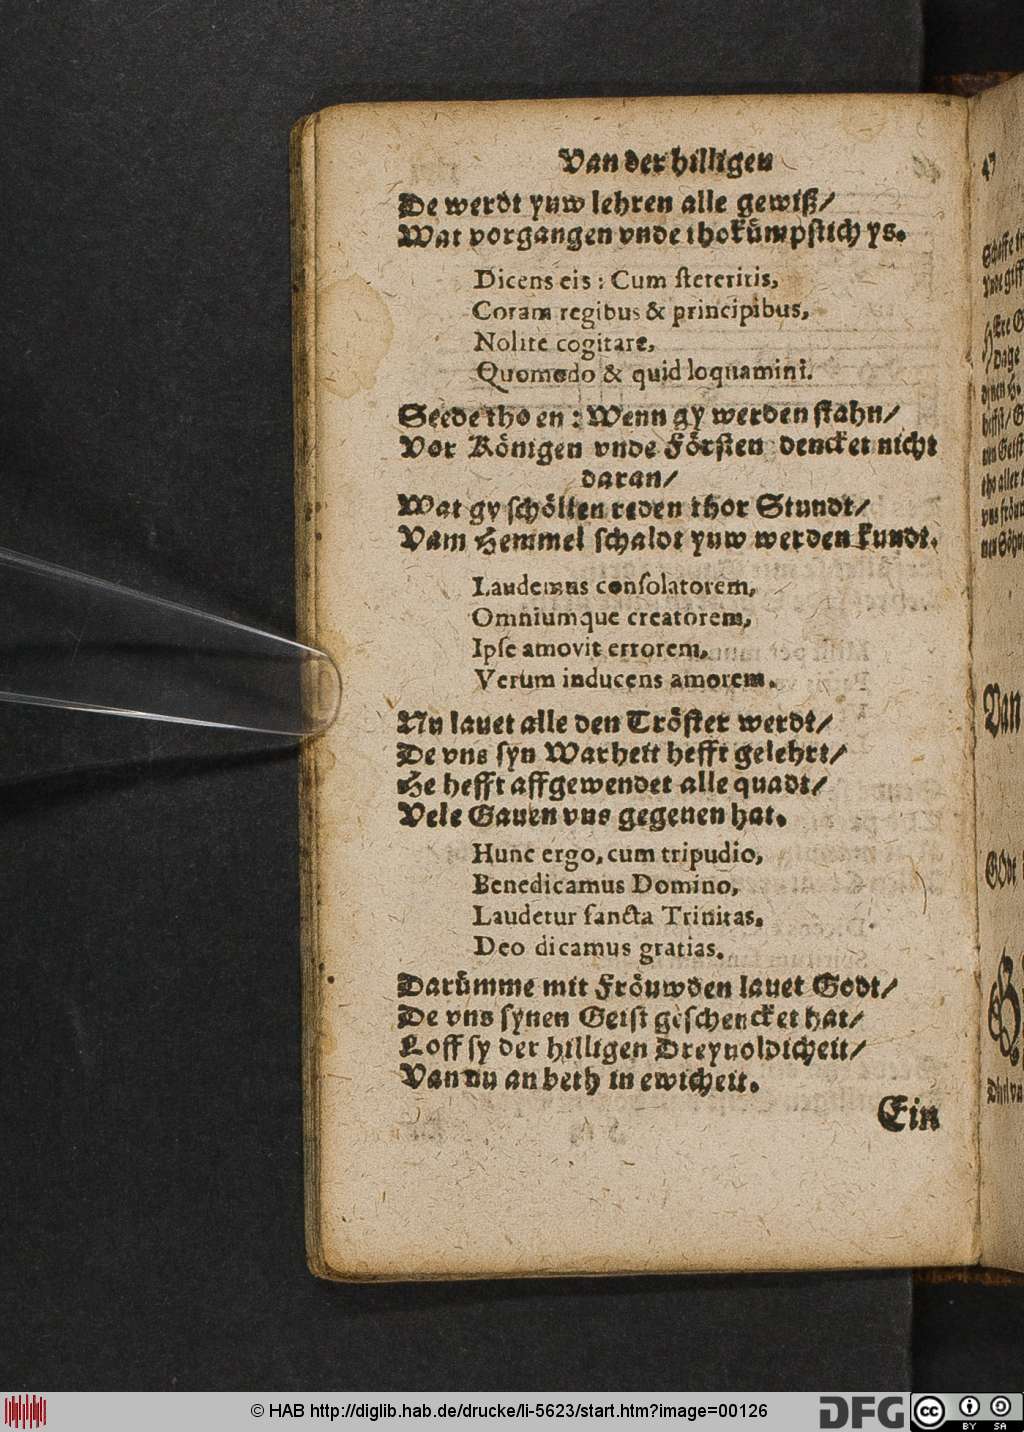 Van der hilligen
De werdt yuw lehren alle gewiß/
Wat vorgangen vnde thokümpstich ys.
Dicens eis : Cum steteritis,
Coram regibus & principibus,
Nolite cogitare,
Quomodo & quid loquamini.
Seede tho en : Wenn gy werden stahn/
Vor Königen vnde Försten dencket nicht
daran/
Wat gy schöllen reden thor Stundt/
Vam Hemmel schaldt yuw werden kundt.
Laudemus consolatorem,
Omniumque creatorem,
Ipse amovit errorem,
Verum inducens amorem.
Nu lauet alle den Tröster werdt/
De vns syn Warheit hefft gelehrt/
He hefft affgewendet alle quadt/
Vele Gauen vns gegeuen hat.
Hunc ergo, cum tripudio,
Benedicamus Domino,
Laudetur sancta Trinitas.
Deo dicamus gratias.
Darümme mit Fröuwden lauet Godt/
De vns synen Geist geschencket hat/
Loff sy der hilligen Dreyuoldicheit/
Van nu an beth in ewicheit.
Ein
47
Van
GOdt
© HAB http://diglib.hab.de/drucke/li-5623/start.htm?image=00126
DFG
cc BY SA